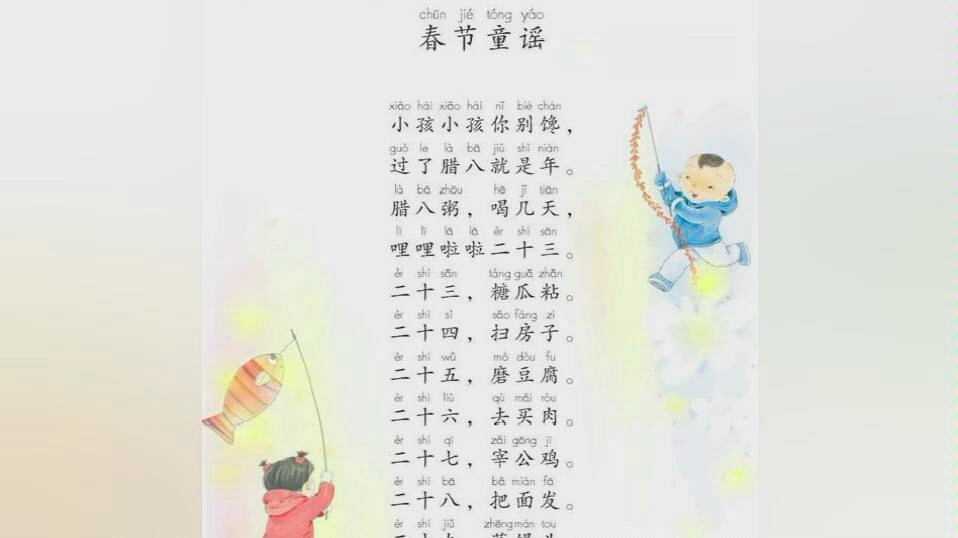 chūn jié tóng yáo
春节童谣
xiǎo hái xiǎo hái nǐ bié chán
小孩小孩你别馋，
guò le là bā jiù shì nián
过了腊八就是年。
là bā zhōu hē jǐ tiān
腊八粥，喝几天，
lī lī lā lā èr shí sān
哩哩啦啦二十三。
èr shí sān táng guā zhān
二十三，糖瓜粘。
èr shí sì sǎo fáng zi
二十四，扫房子。
èr shí wǔ mò dòu fu
二十五，磨豆腐。
èr shí liù qù mǎi ròu
二十六，去买肉。
èr shí qī zǎi gōng jī
二十七，宰公鸡。
èr shí bā bǎ miàn fā
二十八，把面发。
èr shí jiǔ zhēng mán tou